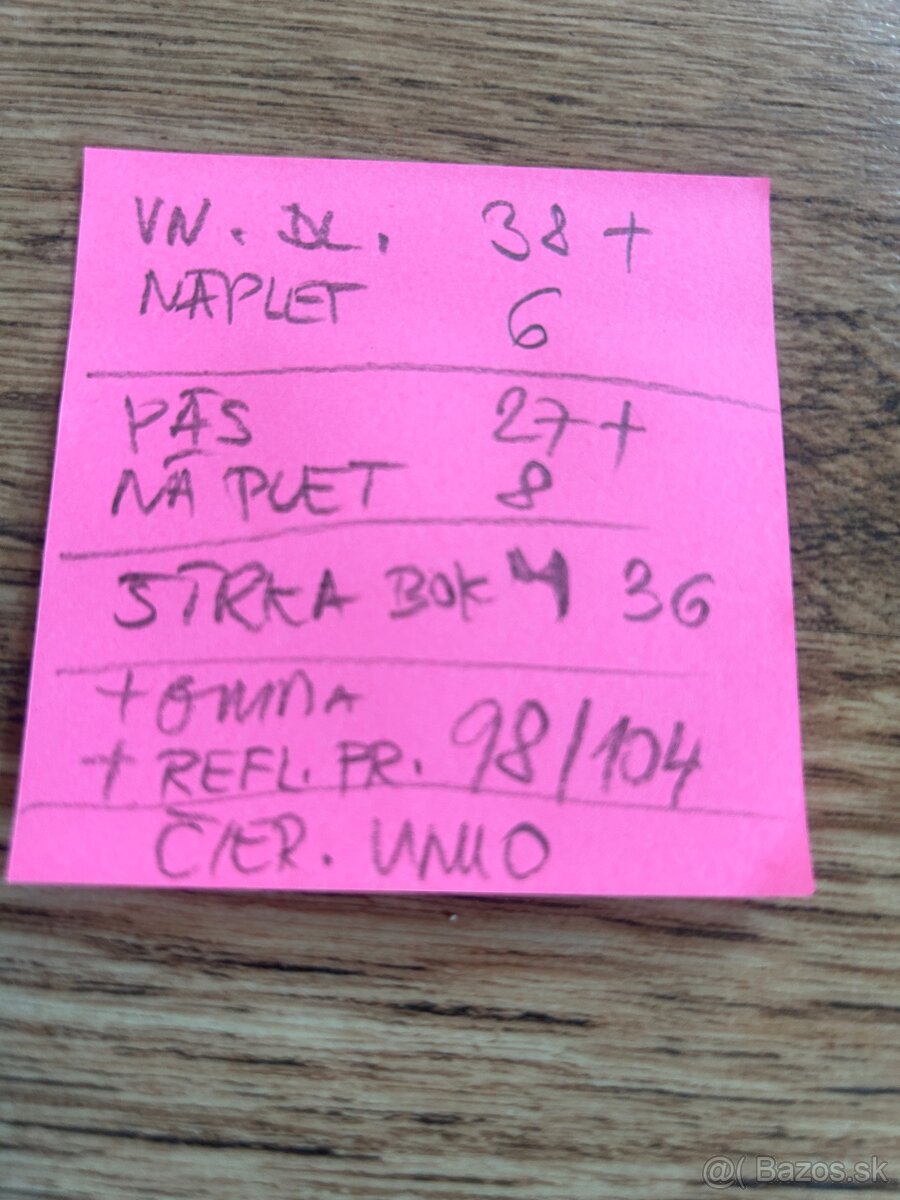 VN. DL. 38 +
NÁPLET 6
PÁS 27 +
NÁPLET 8
ŠÍRKA BOKY 36
+ GUMA
+ REFL. PR. 98/104
ČIER. VNÚ
@( Bazos.sk